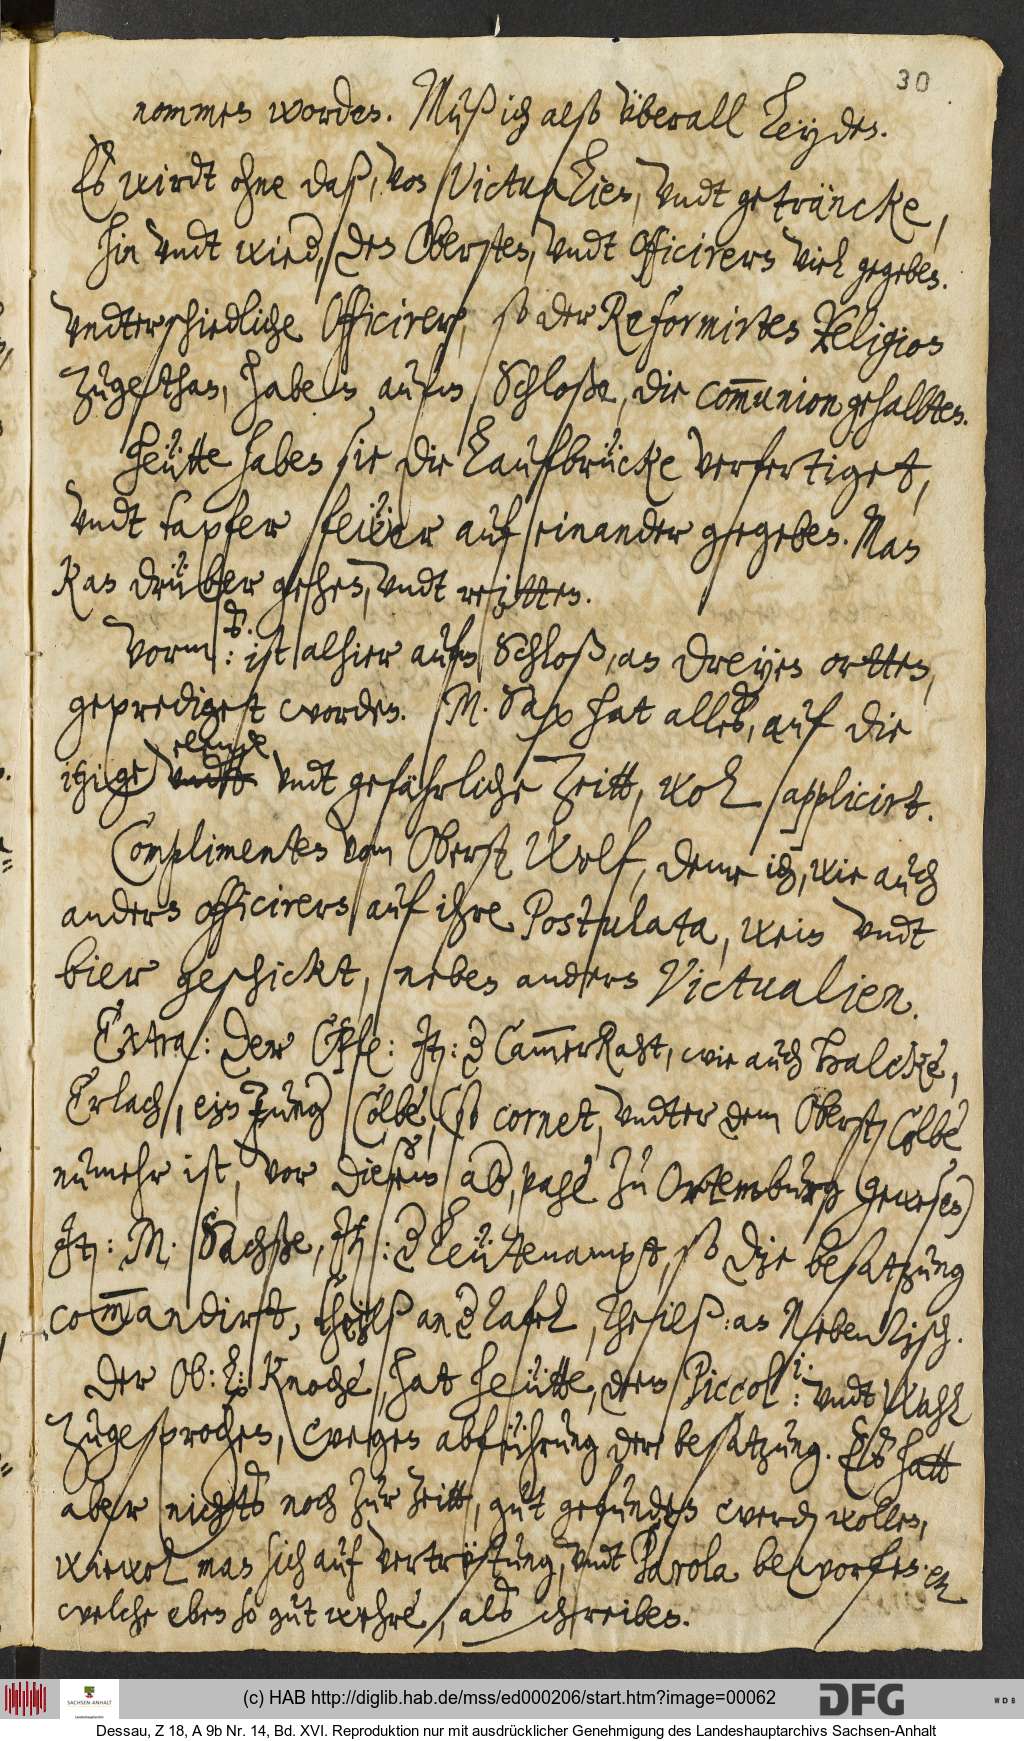 30
nommen worden. Muß ich alß überall Leyden.
Es wirdt ohne daß, von Victualien, vndt geträncke,
hin vndt wied, den Obersten, vndt Officirern viel gegeben.
Vndterschiedliche Officirer, so der Reformirten Religion
zugethan, haben aufm Schloße, die com̅union gehaltten.
Heütte haben sie die Lauffbrücke verfertiget,
vndt tapfer feüer auf einander gegeben. Man
kan drüber gehen, vndt reitten.
Vorm: ist alhier aufm Schloß, an dreyen ortten,
geprediget worden. M. Sax hat alles, auf die
itzige elende vndt gefährliche Zeitt, wol applicirt.
Complimenten vom Oberst Wolf, deme ich, wie auch
andern officirern auf ihre Postulata, wein vndt
bier geschickt, neben andern Victualien.
Extra: der It: CammerRaht, wie auch Halcke,
Erlach, ein Jung Colbe, (so cornet, vndter dem Oberst Colbe
numehr ist, vor diesem ab page zu Ortemburg gewesen)
It: M. Sachße, It: Leütenampt, so die besatzung
com̅andirt, theilß an Tafel, theilß an Nebentisch.
Der Ob: Knoche, hat heütte, dem Piccol: vndt Wahl
zugesprochen, wegen abführung der besatzung. Es hatt
aber nichts noch zur zeitt, gut gefunden werden wollen,
wiewol man sich auf vertröstung, vndt Parola beworfen.
welche eben so gut wehre, als schreiben.
(c) HAB http://diglib.hab.de/mss/ed000206/start.htm?image=00062
SACHSEN-ANHALT
DFG
WDB
Dessau, Z 18, A 9b Nr. 14, Bd. XVI. Reproduktion nur mit ausdrücklicher Genehmigung des Landeshauptarchivs Sachsen-Anhalt